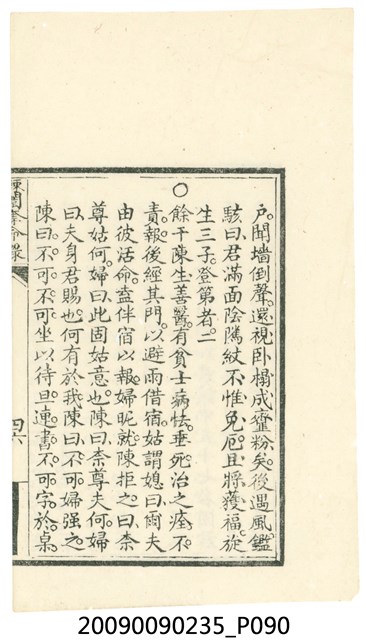 戶。聞墻倒聲。還視臥榻成虀粉矣。後遇風鑑
駭曰。君滿面陰隲紋。不惟免厄。且將獲福。旋
生三子。登第者二。
○
餘干陳生善醫。有貧士病怯。垂死治之痊。不
責報。後經其門。以避雨借宿。姑謂媳曰。爾夫
由彼活命。盍伴宿以報。婦昵就陳拒之曰。柰
尊姑何。婦曰。此固姑意也。陳曰。柰尊夫何。婦
曰。夫身君賜也。何有於我。陳曰。不可。婦強之
陳曰。不可不可。坐以待旦。連書不可字於桌。
四六
20090090235_P090